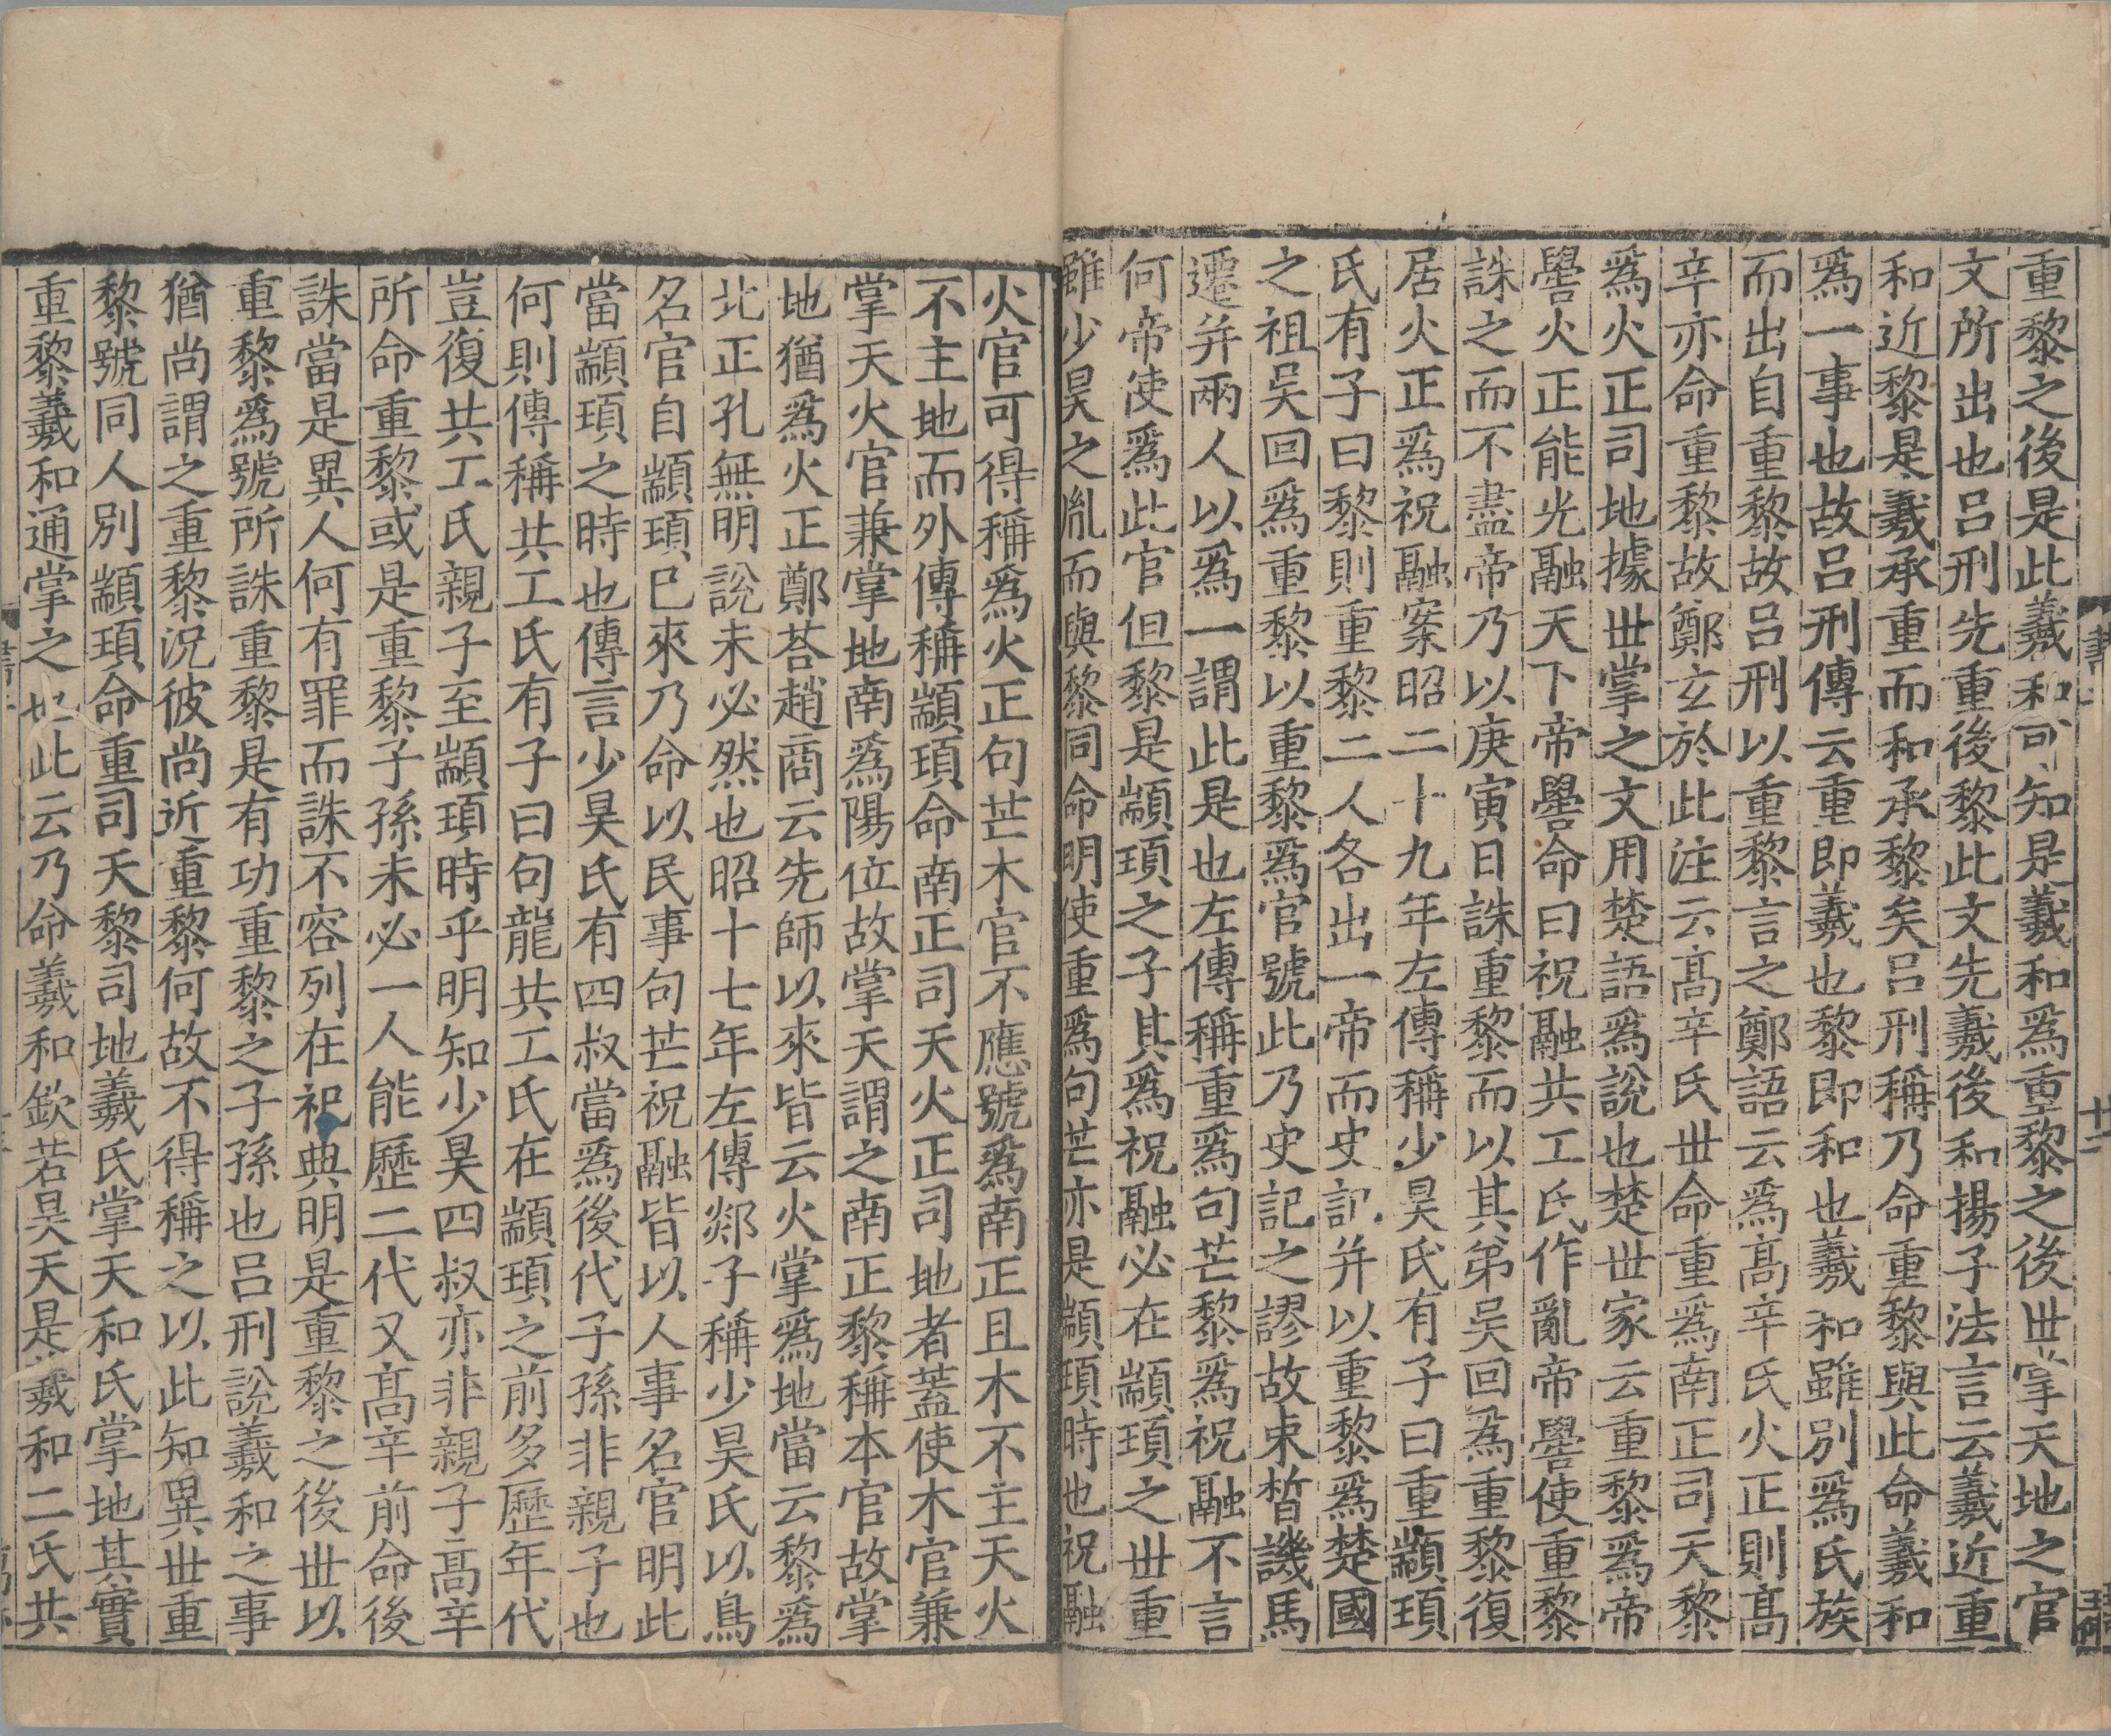 重黎之後是此羲和可知是羲和爲重黎之後世掌天地之官
文所出也吕刑先重後黎此文先羲後和揚子法言云羲近重
和近黎是羲承重而和承黎矣吕刑稱乃命重黎與此命羲和
爲一事也故吕刑傳云重即羲也黎即和也羲和雖别爲氏族
而出自重黎故吕刑以重黎言之鄭語云爲髙辛氏火正則髙
辛亦命重黎故鄭玄於此注云髙辛氏世命重爲南正司天黎
爲火正司地據世掌之文用楚語爲說也楚世家云重黎爲帝
嚳火正能光融天下帝嚳命曰祝融共工氏作亂帝嚳使重黎
誅之而不盡帝乃以庚寅日誅重黎而以其弟吴回爲重黎復
居火正爲祝融案昭二十九年左傳稱少昊氏有子曰重顓頊
氏有子曰黎則重黎二人各出一帝而史記并以重黎爲楚國
之祖吴回爲重黎以重黎爲官號此乃史記之謬故束晳譏馬
遷并兩人以爲一謂此是也左傳稱重爲句芒黎爲祝融不言
何帝使爲此官但黎是顓頊之子其爲祝融必在顓頊之世重
雖少昊之胤而與黎同命明使重爲句芒亦是顓頊時也祝融
火官可得稱爲火正句芒木官不應號爲南正且木不主天火
不主地而外傳稱顓頊命南正司天火正司地者蓋使木官兼
掌天火官兼掌地南爲陽位故掌天謂之南正黎稱本官故掌
地猶爲火正鄭荅趙商云先師以來皆云火掌爲地當云黎爲
北正孔無明說未必然也昭十七年左傳郯子稱少昊氏以鳥
名官自顓頊已來乃命以民事句芒祝融皆以人事名官明此
當顓頊之時也傳言少昊氏有四叔當爲後代子孫非親子也
何則傳稱共工氏有子曰句龍共工氏在顓頊之前多歷年代
豈復共工氏親子至顓頊時乎明知少昊四叔亦非親子髙辛
所命重黎或是重黎子孫未必一人能歷二代又髙辛前命後
誅當是異人何有罪而誅不容列在祀典明是重黎之後世以
重黎爲號所誅重黎是有功重黎之子孫也吕刑說羲和之事
猶尚謂之重黎況彼尚近重黎何故不得稱之以此知異世重
黎號同人别顓頊命重司天黎司地羲氏掌天和氏掌地其實
重黎羲和通掌之也此云乃命羲和欽若昊天是羲和二氏共